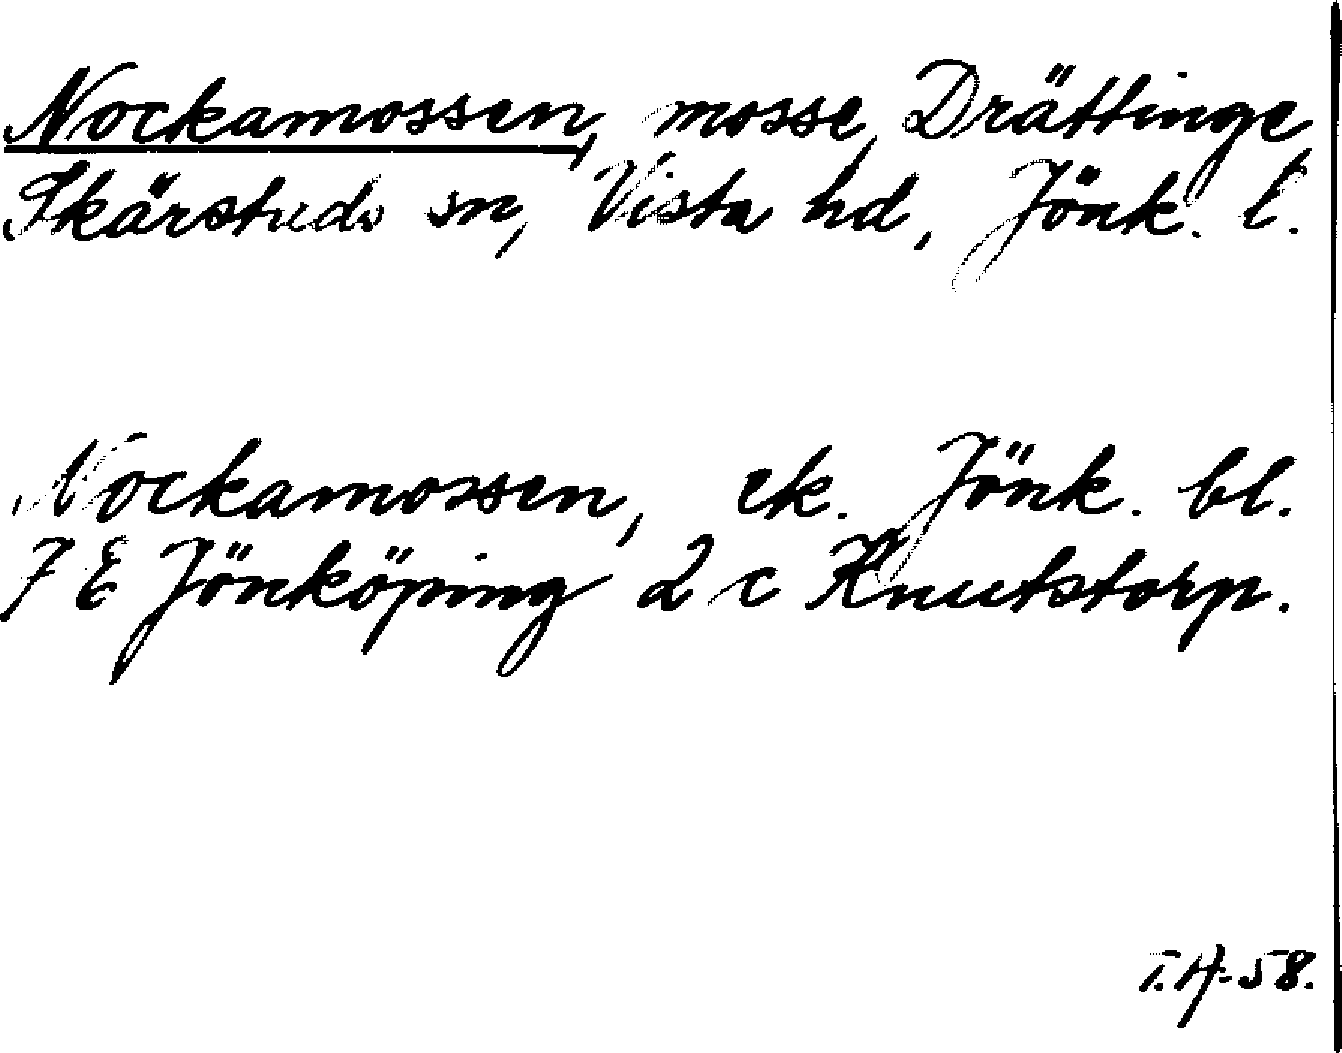 Nockamossen, mosse, Drättinge,
Skärstads sn, Vista hd, Jönk. l.
Nockamossen, ek. Jönk. bl.
7 E Jönköping 2 c Knutstorp.
T.H-58.